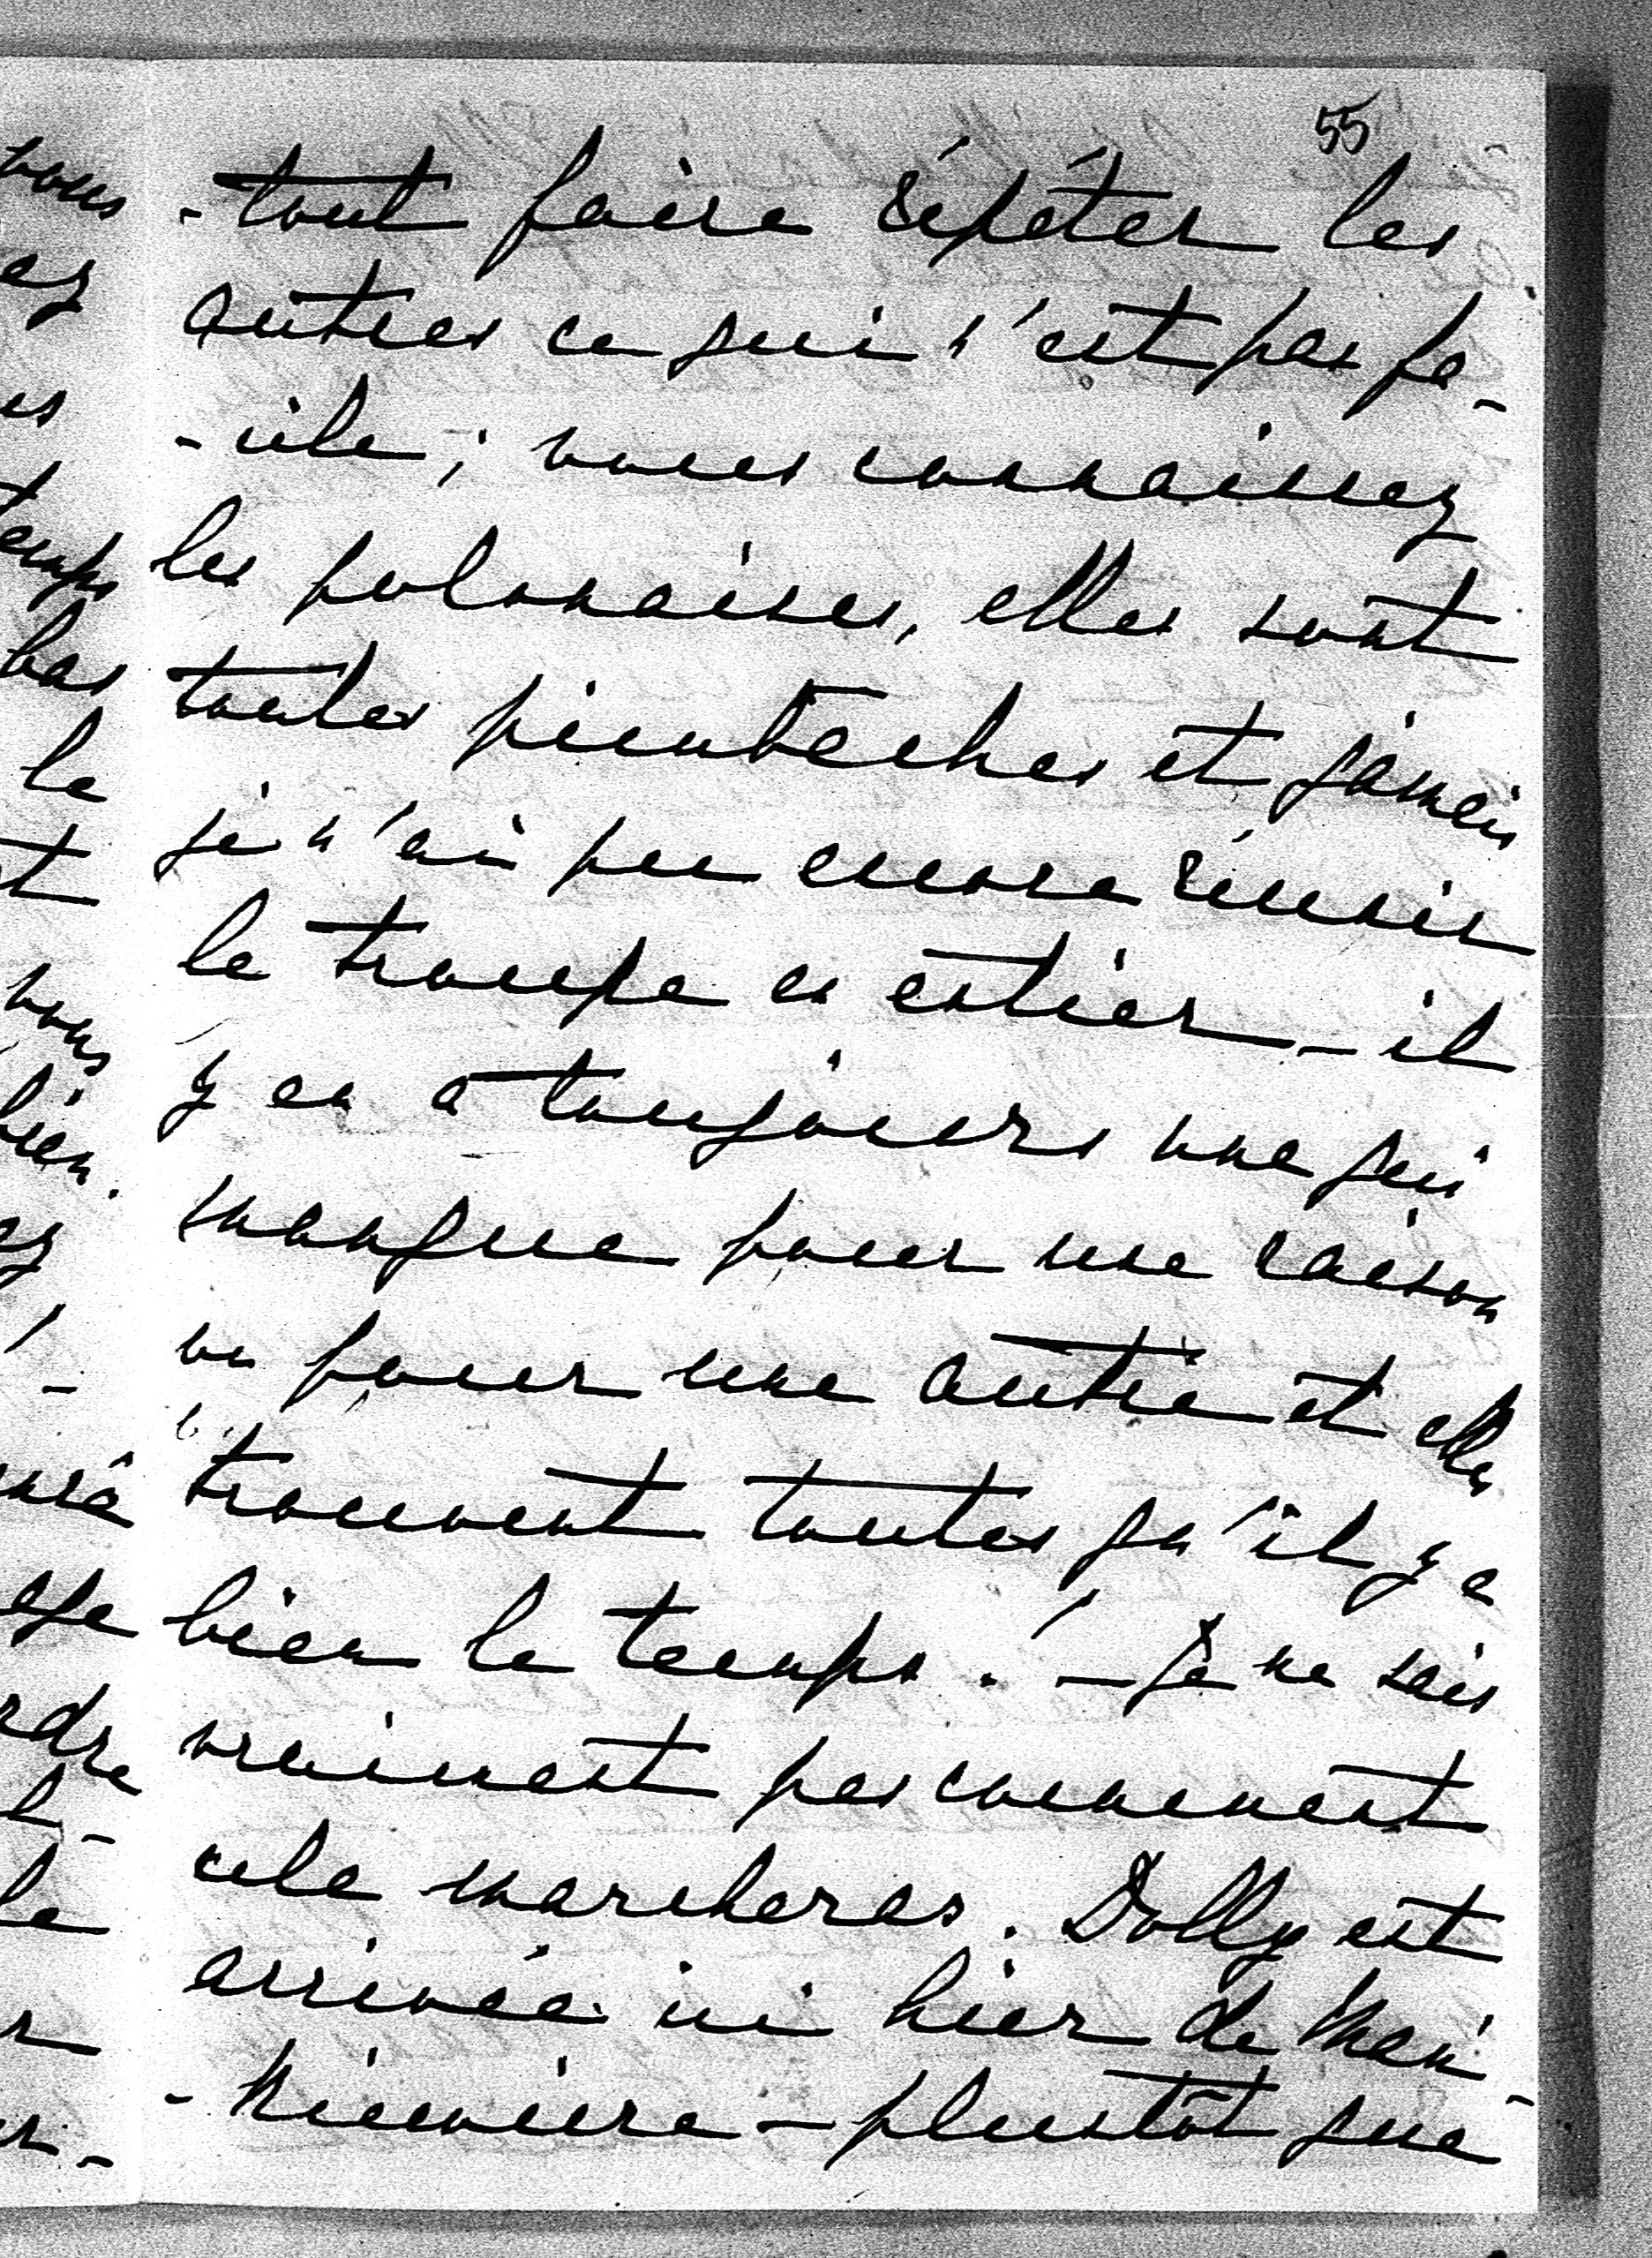 55
-tout faire répéter les
autres ce qui n'est pas fa-
-cile; vous connaissez
les polonaises, elles sont
toutes pimbeches et jamais
je n'ai pu encore réunir
la troupe en entier - il
y en a toujours une qui
manque pour une raison
ou pour une autre et elles
trouvent toutes qu'il y a
bien le temps. - Je ne sais
vraiment pas comment
cela marcheras. Dolly est
arrivée ici hier de
- plustôt que
vous
ez
temps
bas
le
vous
bien.
ez
rdre